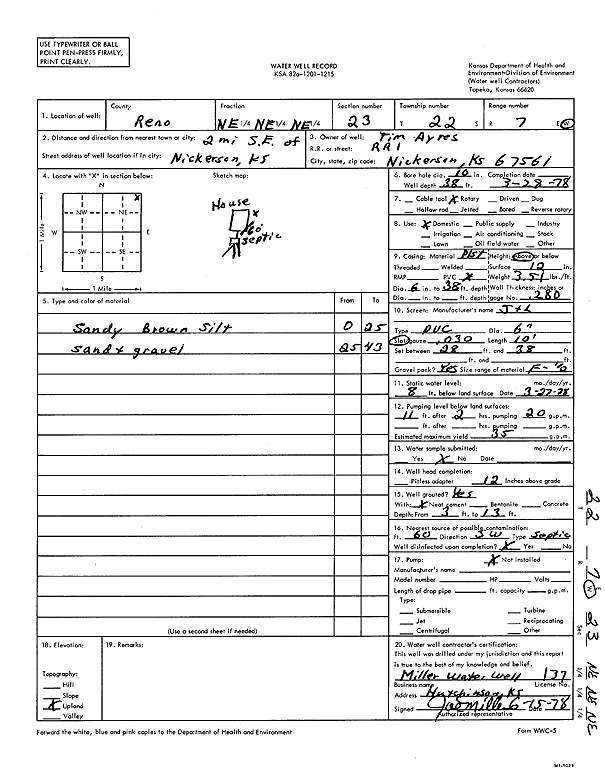 USE TYPEWRITER OR BALL
POINT PEN-PRESS FIRMLY,
PRINT CLEARLY.
WATER WELL RECORD
KSA 82a-1201-1215
Kansas Department of Health and
Environment-Division of Environment
(Water well Contractors)
Topeka, Kansas 66620
1. Location of well: County Reno Fraction NE 1/4 NE 1/4 NE 1/4 Section number 23 Township number T 22 S Range number R 7 E/W
2. Distance and direction from nearest town or city: 2 mi S.E. of
Street address of well location if in city: Nickerson, KS
3. Owner of well: Tim Ayres
R.R. or street: RR1
City, state, zip code: Nickerson, KS 67561
4. Locate with "X" in section below:
Sketch map:
N
NW NE
W E
SW SE
S
1 Mile
1 Mile
X
House
X
60'
septic
6. Bore hole dia. 10 in. Completion date
Well depth 38 ft. 3-28-78
7. Cable tool X Rotary Driven Dug
Hollow rod Jetted Bored Reverse rotary
8. Use: X Domestic Public supply Industry
Irrigation Air conditioning Stock
Lawn Oil field water Other
9. Casing: Material Plst Height: Above or below
Threaded Welded Surface 12 in.
RMP PVC X Weight 3.51 lbs./ft.
Dia. 6 in. to 38 ft. depth Wall Thickness: inches or
Dia. in. to ft. depth gage No. .280
5. Type and color of material From To
Sandy Brown Silt 0 25
Sand & gravel 25 43
(Use a second sheet if needed)
10. Screen: Manufacturer's name J+L
Type PVC Dia. 6"
Slot/gauze .030 Length 10'
Set between 28 ft. and 38 ft.
ft. and ft.
Gravel pack? Yes Size range of material
11. Static water level: mo./day/yr.
8 ft. below land surface Date 3-27-78
12. Pumping level below land surfaces:
11 ft. after 2 hrs. pumping 20 g.p.m.
ft. after hrs. pumping g.p.m.
Estimated maximum yield 35 g.p.m.
13. Water sample submitted: mo./day/yr.
Yes X No Date
14. Well head completion:
Pitless adapter 12 Inches above grade
15. Well grouted? Yes
With: X Neat cement Bentonite Concrete
Depth: From 3 ft. to 13 ft.
16. Nearest source of possible contamination:
ft. 60 Direction SW Type Septic
Well disinfected upon completion? X Yes No
17. Pump: X Not installed
Manufacturer's name
Model number HP Volts
Length of drop pipe ft. capacity g.p.m.
Type:
Submersible Turbine
Jet Reciprocating
Centrifugal Other
18. Elevation:
Topography:
Hill
Slope
X Upland
Valley
19. Remarks:
20. Water well contractor's certification:
This well was drilled under my jurisdiction and this report
is true to the best of my knowledge and belief.
Miller Water Well 137
Business name License No.
Address Hutchinson, KS
Signed Joe Miller Date 6-15-78
Authorized representative
Forward the white, blue and pink copies to the Department of Health and Environment
Form WWC-5
T 22
R 7 E W
Sec 23
NE 1/4 NE 1/4 NE 1/4